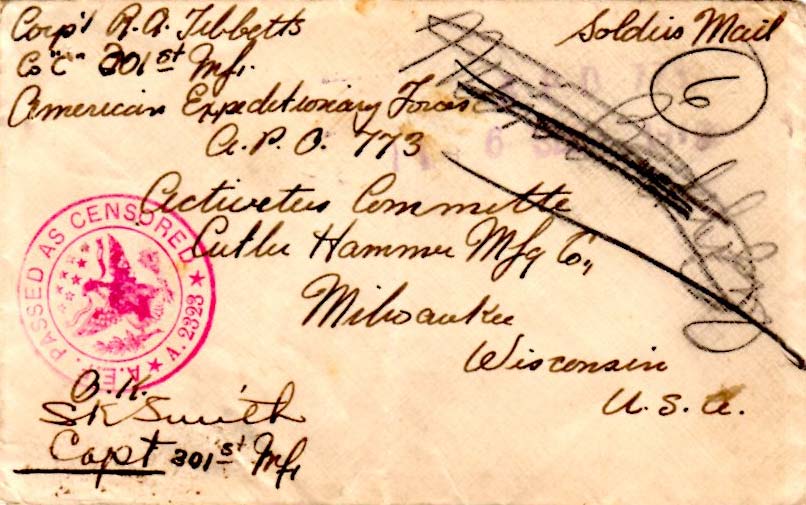 Corp'l R. A. Tibbetts
Co "C" 301st Inf.
American Expeditionary Forces
A. P. O. 773
Soldiers Mail
6
Activeties Committe
Cutler Hammer Mfg Co.,
Milwaukee
Wisconsin
U. S. A.
PASSED AS CENSORED
A. 2323
A.E.F.
O.K.
S K Smith
Capt 301st Inf.